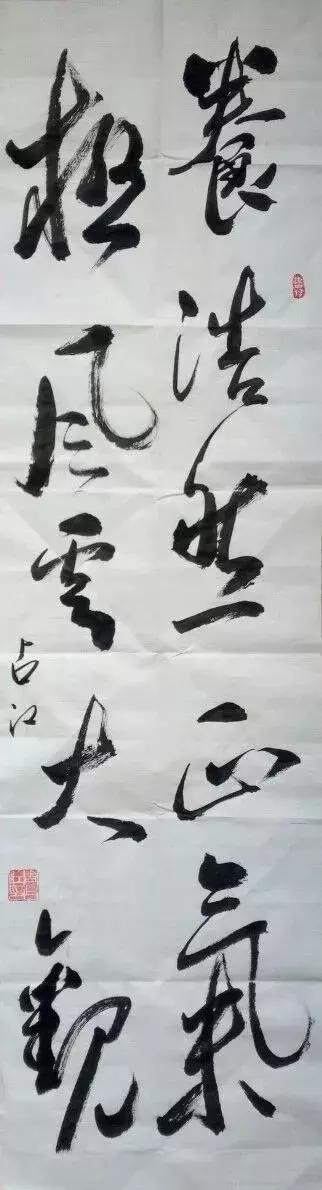 養浩然正氣
極風雲大觀
占江